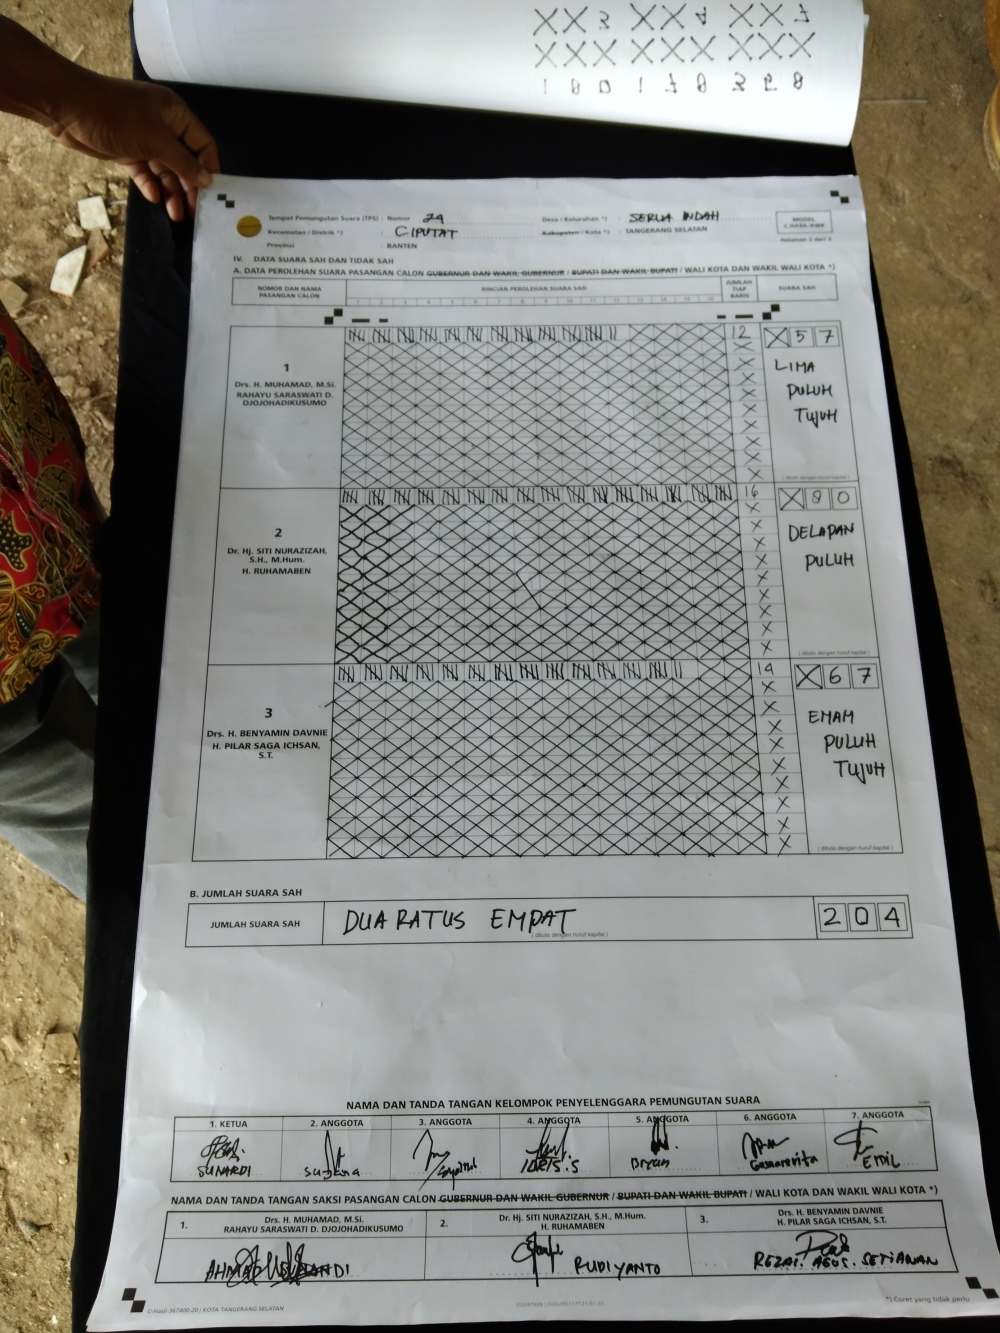 Tempat Pemungutan Suara (TPS) : Nomor 24 Desa / Kelurahan *) : SERUA INDAH
Kecamatan / Distrik *) : CIPUTAT Kabupaten / Kota *) : TANGERANG SELATAN
Provinsi : BANTEN
MODEL
C.HASIL-KWK
Halaman 2 dari 2
IV. DATA SUARA SAH DAN TIDAK SAH
A. DATA PEROLEHAN SUARA PASANGAN CALON GUBERNUR DAN WAKIL GUBERNUR / BUPATI DAN WAKIL BUPATI / WALI KOTA DAN WAKIL WALI KOTA *)
NOMOR DAN NAMA PASANGAN CALON
RINCIAN PEROLEHAN SUARA SAH
JUMLAH TIAP BARIS
SUARA SAH
1
Drs. H. MUHAMAD, M.Si.
RAHAYU SARASWATI D.
DJOJOHADIKUSUMO
12
X 5 7
LIMA
PULUH
TUJUH
(ditulis dengan huruf kapital)
2
Dr. Hj. SITI NURAZIZAH,
S.H., M.Hum.
H. RUHAMABEN
16
X 8 0
DELAPAN
PULUH
(ditulis dengan huruf kapital)
3
Drs. H. BENYAMIN DAVNIE
H. PILAR SAGA ICHSAN,
S.T.
14
X 6 7
ENAM
PULUH
TUJUH
(ditulis dengan huruf kapital)
B. JUMLAH SUARA SAH
JUMLAH SUARA SAH DUA RATUS EMPAT 2 0 4
(ditulis dengan huruf kapital)
NAMA DAN TANDA TANGAN KELOMPOK PENYELENGGARA PEMUNGUTAN SUARA
1. KETUA 2. ANGGOTA 3. ANGGOTA 4. ANGGOTA 5. ANGGOTA 6. ANGGOTA 7. ANGGOTA
SUNARDI IDRIS.S Bryan EMIL
NAMA DAN TANDA TANGAN SAKSI PASANGAN CALON GUBERNUR DAN WAKIL GUBERNUR / BUPATI DAN WAKIL BUPATI / WALI KOTA DAN WAKIL WALI KOTA *)
1. Drs. H. MUHAMAD, M.Si.
RAHAYU SARASWATI D. DJOJOHADIKUSUMO
2. Dr. Hj. SITI NURAZIZAH, S.H., M.Hum.
H. RUHAMABEN
RUDIYANTO
3. Drs. H. BENYAMIN DAVNIE
H. PILAR SAGA ICHSAN, S.T.
REZAI. AGUS. SETIAWAN
C-Hasil-367400-20 | KOTA TANGERANG SELATAN
*) Coret yang tidak perlu